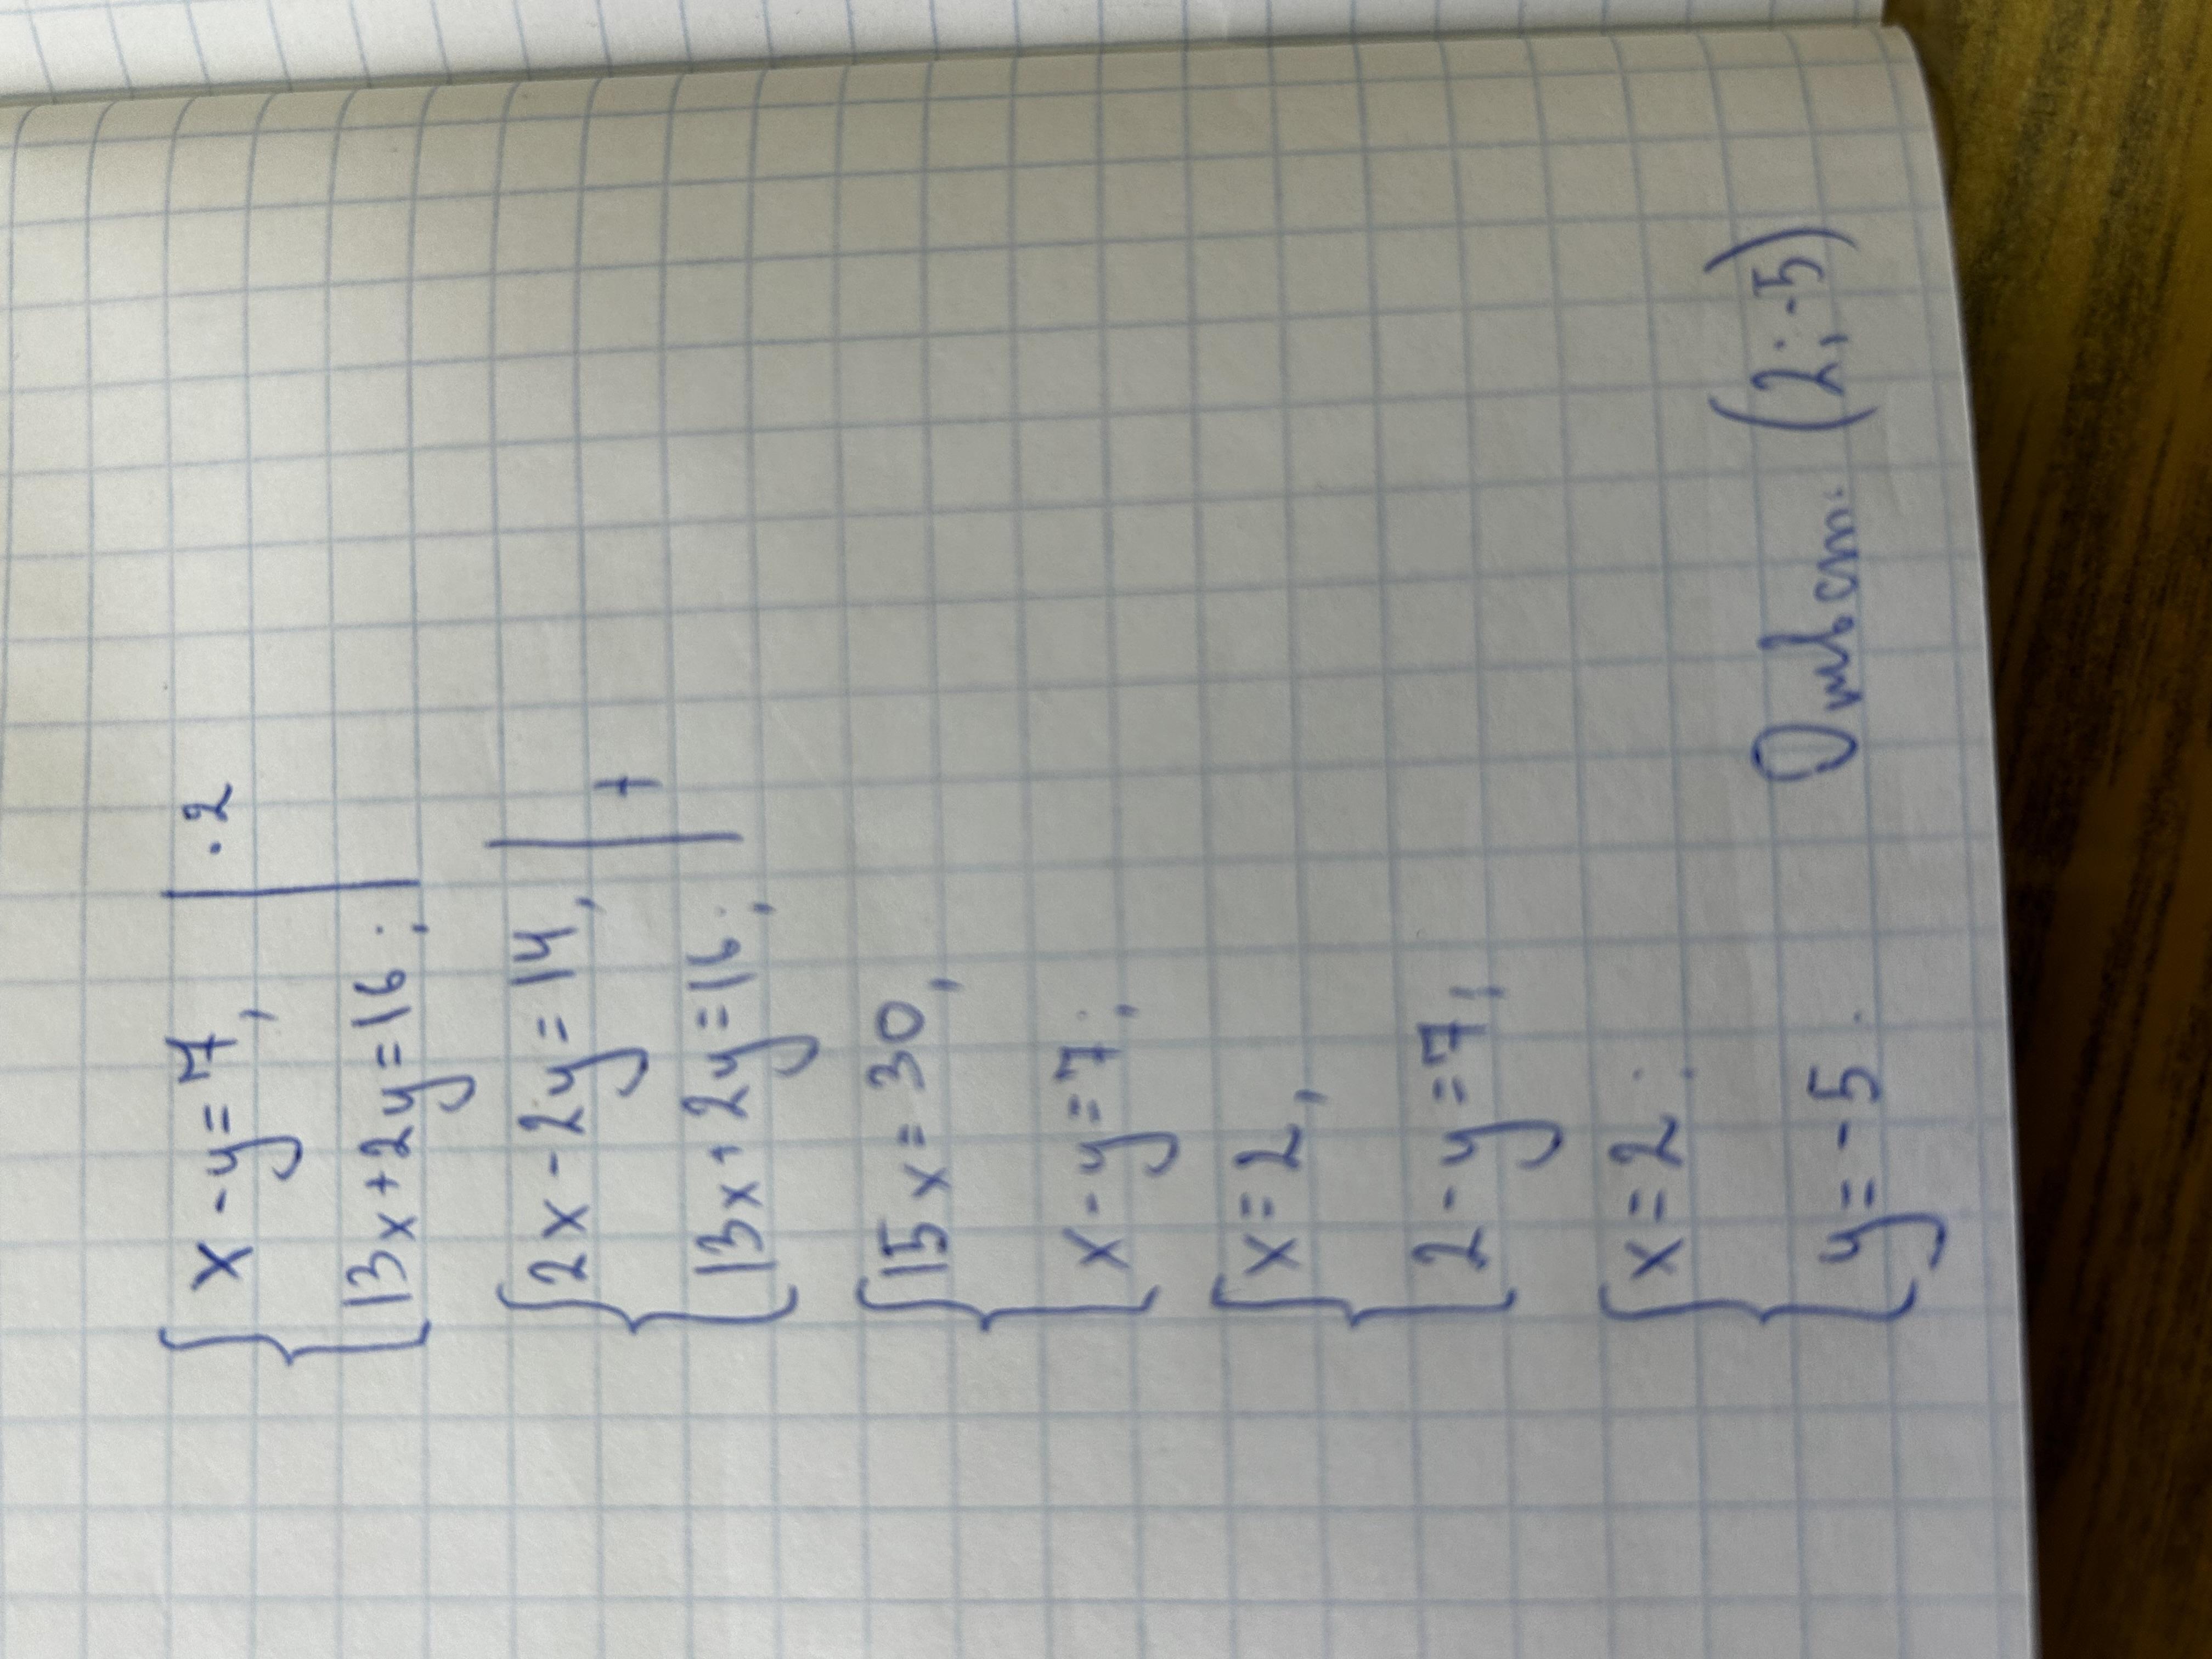 { x - y = 7, | · 2
{ 13x + 2y = 16; |
{ 2x - 2y = 14, | +
{ 13x + 2y = 16; |
{ 15x = 30,
{ x - y = 7;
{ x = 2,
{ 2 - y = 7;
{ x = 2.
{ y = -5. Ответ: (2; -5)